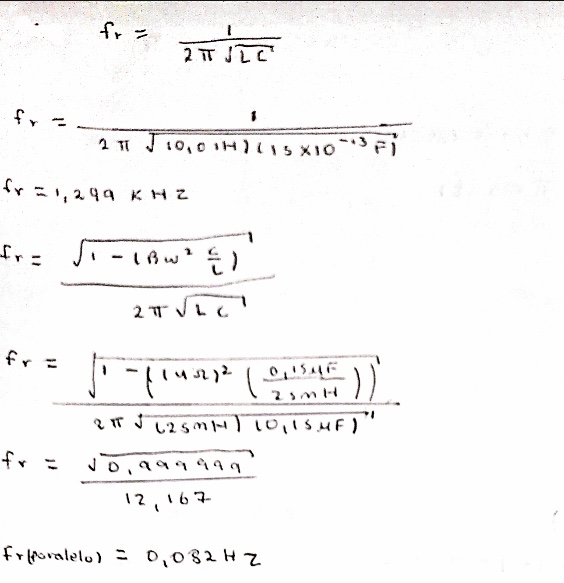 fr = 1 / 2π √LC
fr = 1 / 2π √(0,01H)(15 X10^-13 F)
fr = 1,299 KHZ
fr = √1 - (Rw² C/L) / 2π √LC
fr = √1 - ((4Ω)² (0,15μF / 25mH)) / 2π √(25mH) (0,15μF)
fr = √0,999999 / 12,167
fr(paralelo) = 0,082 HZ